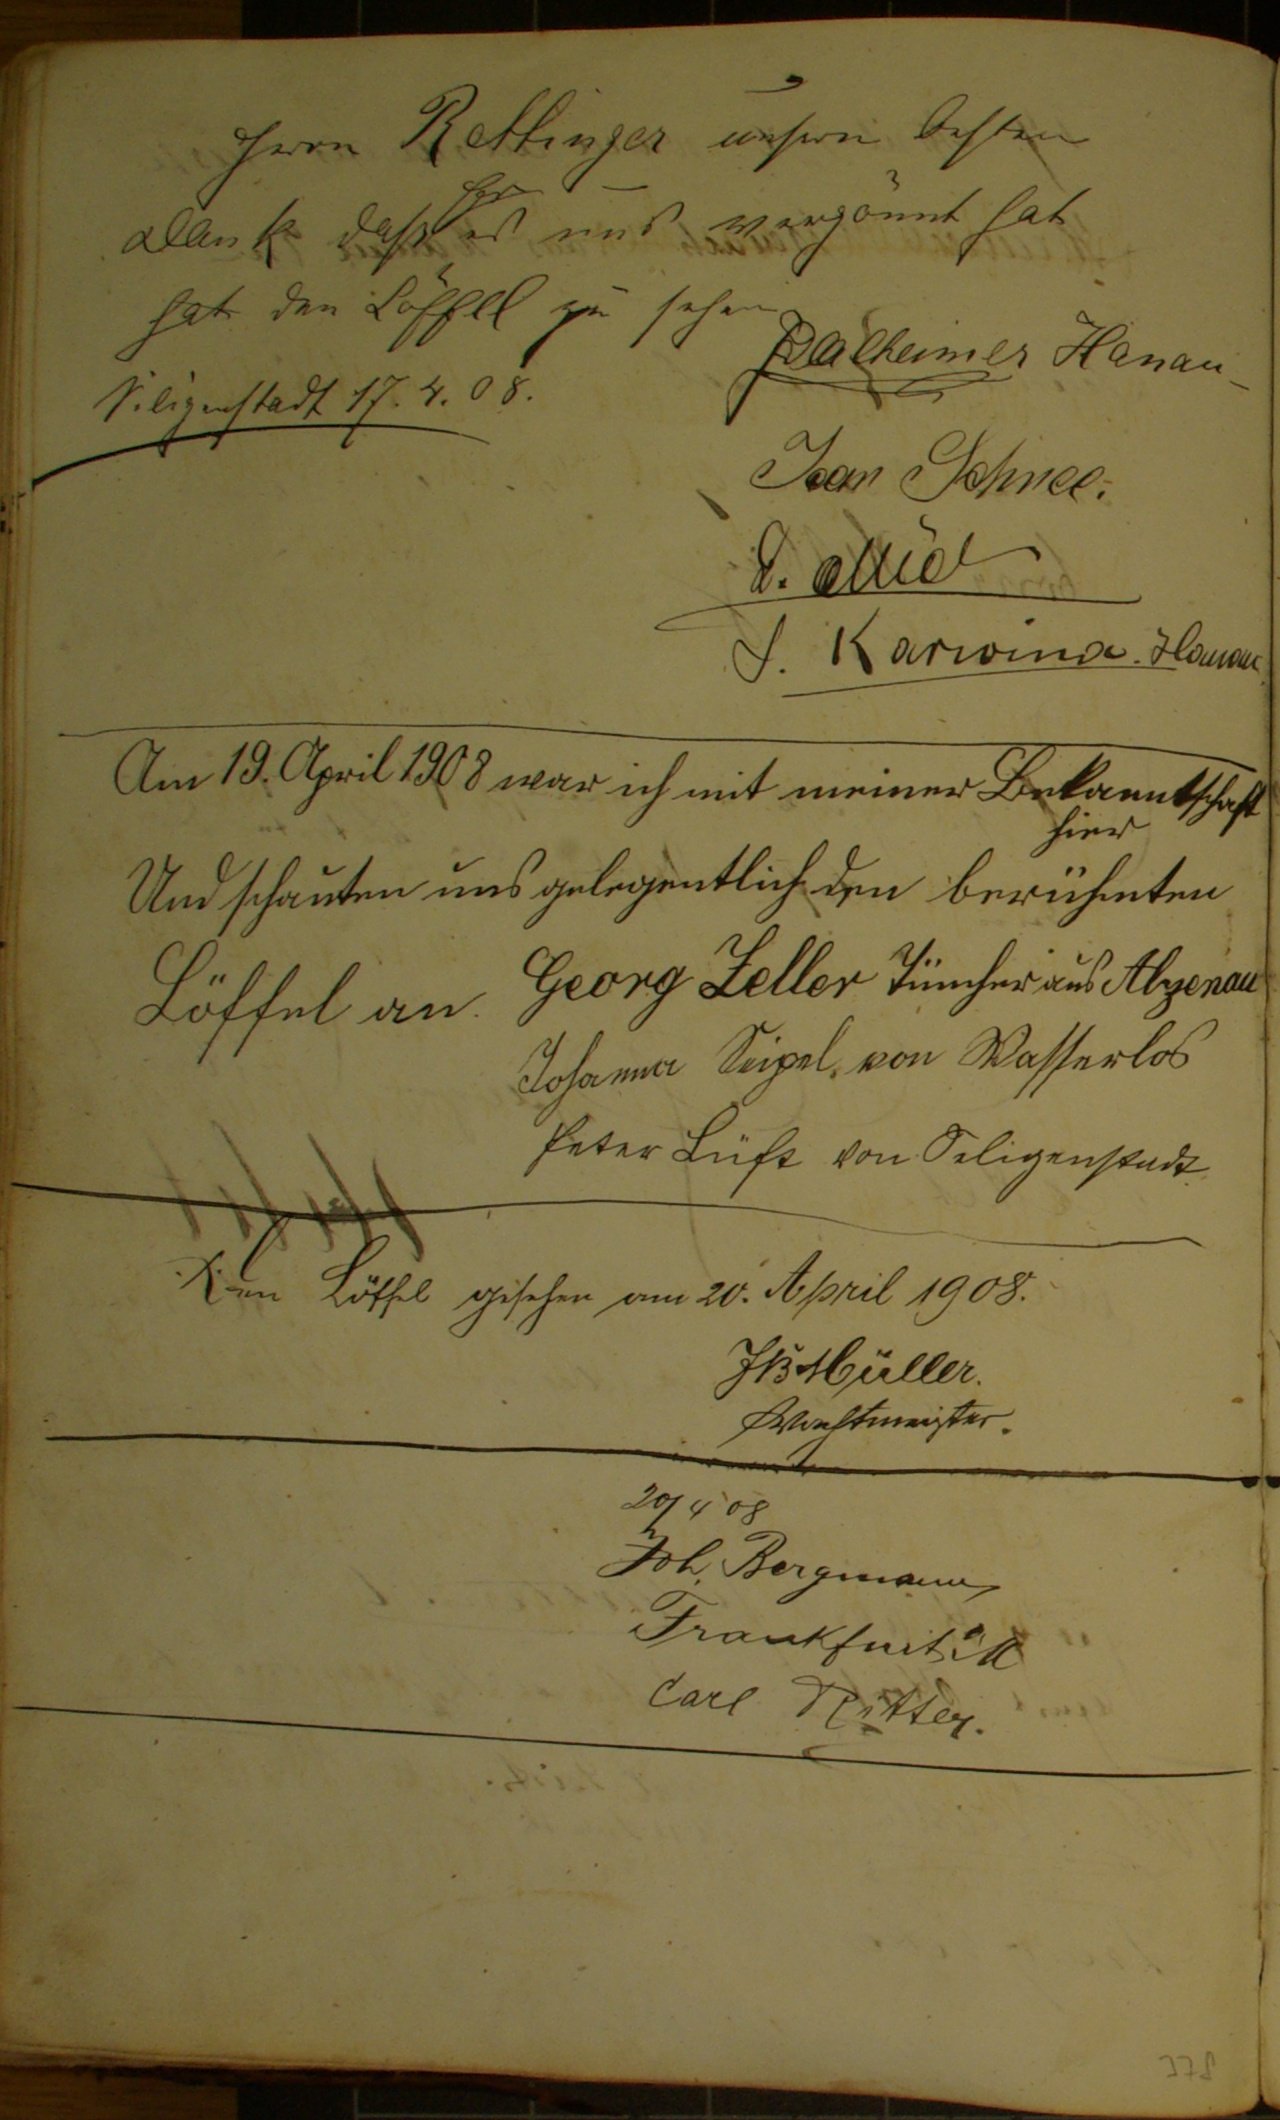 Herrn Rettinger unsern besten
Dank daß Hr es uns vergönnt hat
hat den Löffel zu sehen
Seligenstadt 17.4.08.
Balheimer Hanau
Jean Schnee.
J. Karwina. Hanau
Am 19. April 1908 war ich mit meiner Bekanntschaft
hier
Und schauten uns gelegentlich den berühmten
Löffel an.
Georg Zeller Tüncher aus Alzenau
Johanna Seipel von Wasserlos
Peter Lüft von Seligenstadt
Den Löffel gesehen am 20. April 1908.
JB Müller.
Wachtmeister.
20/4 08
Joh. Bergmann
Frankfurt a M
Carl Ritter.
378